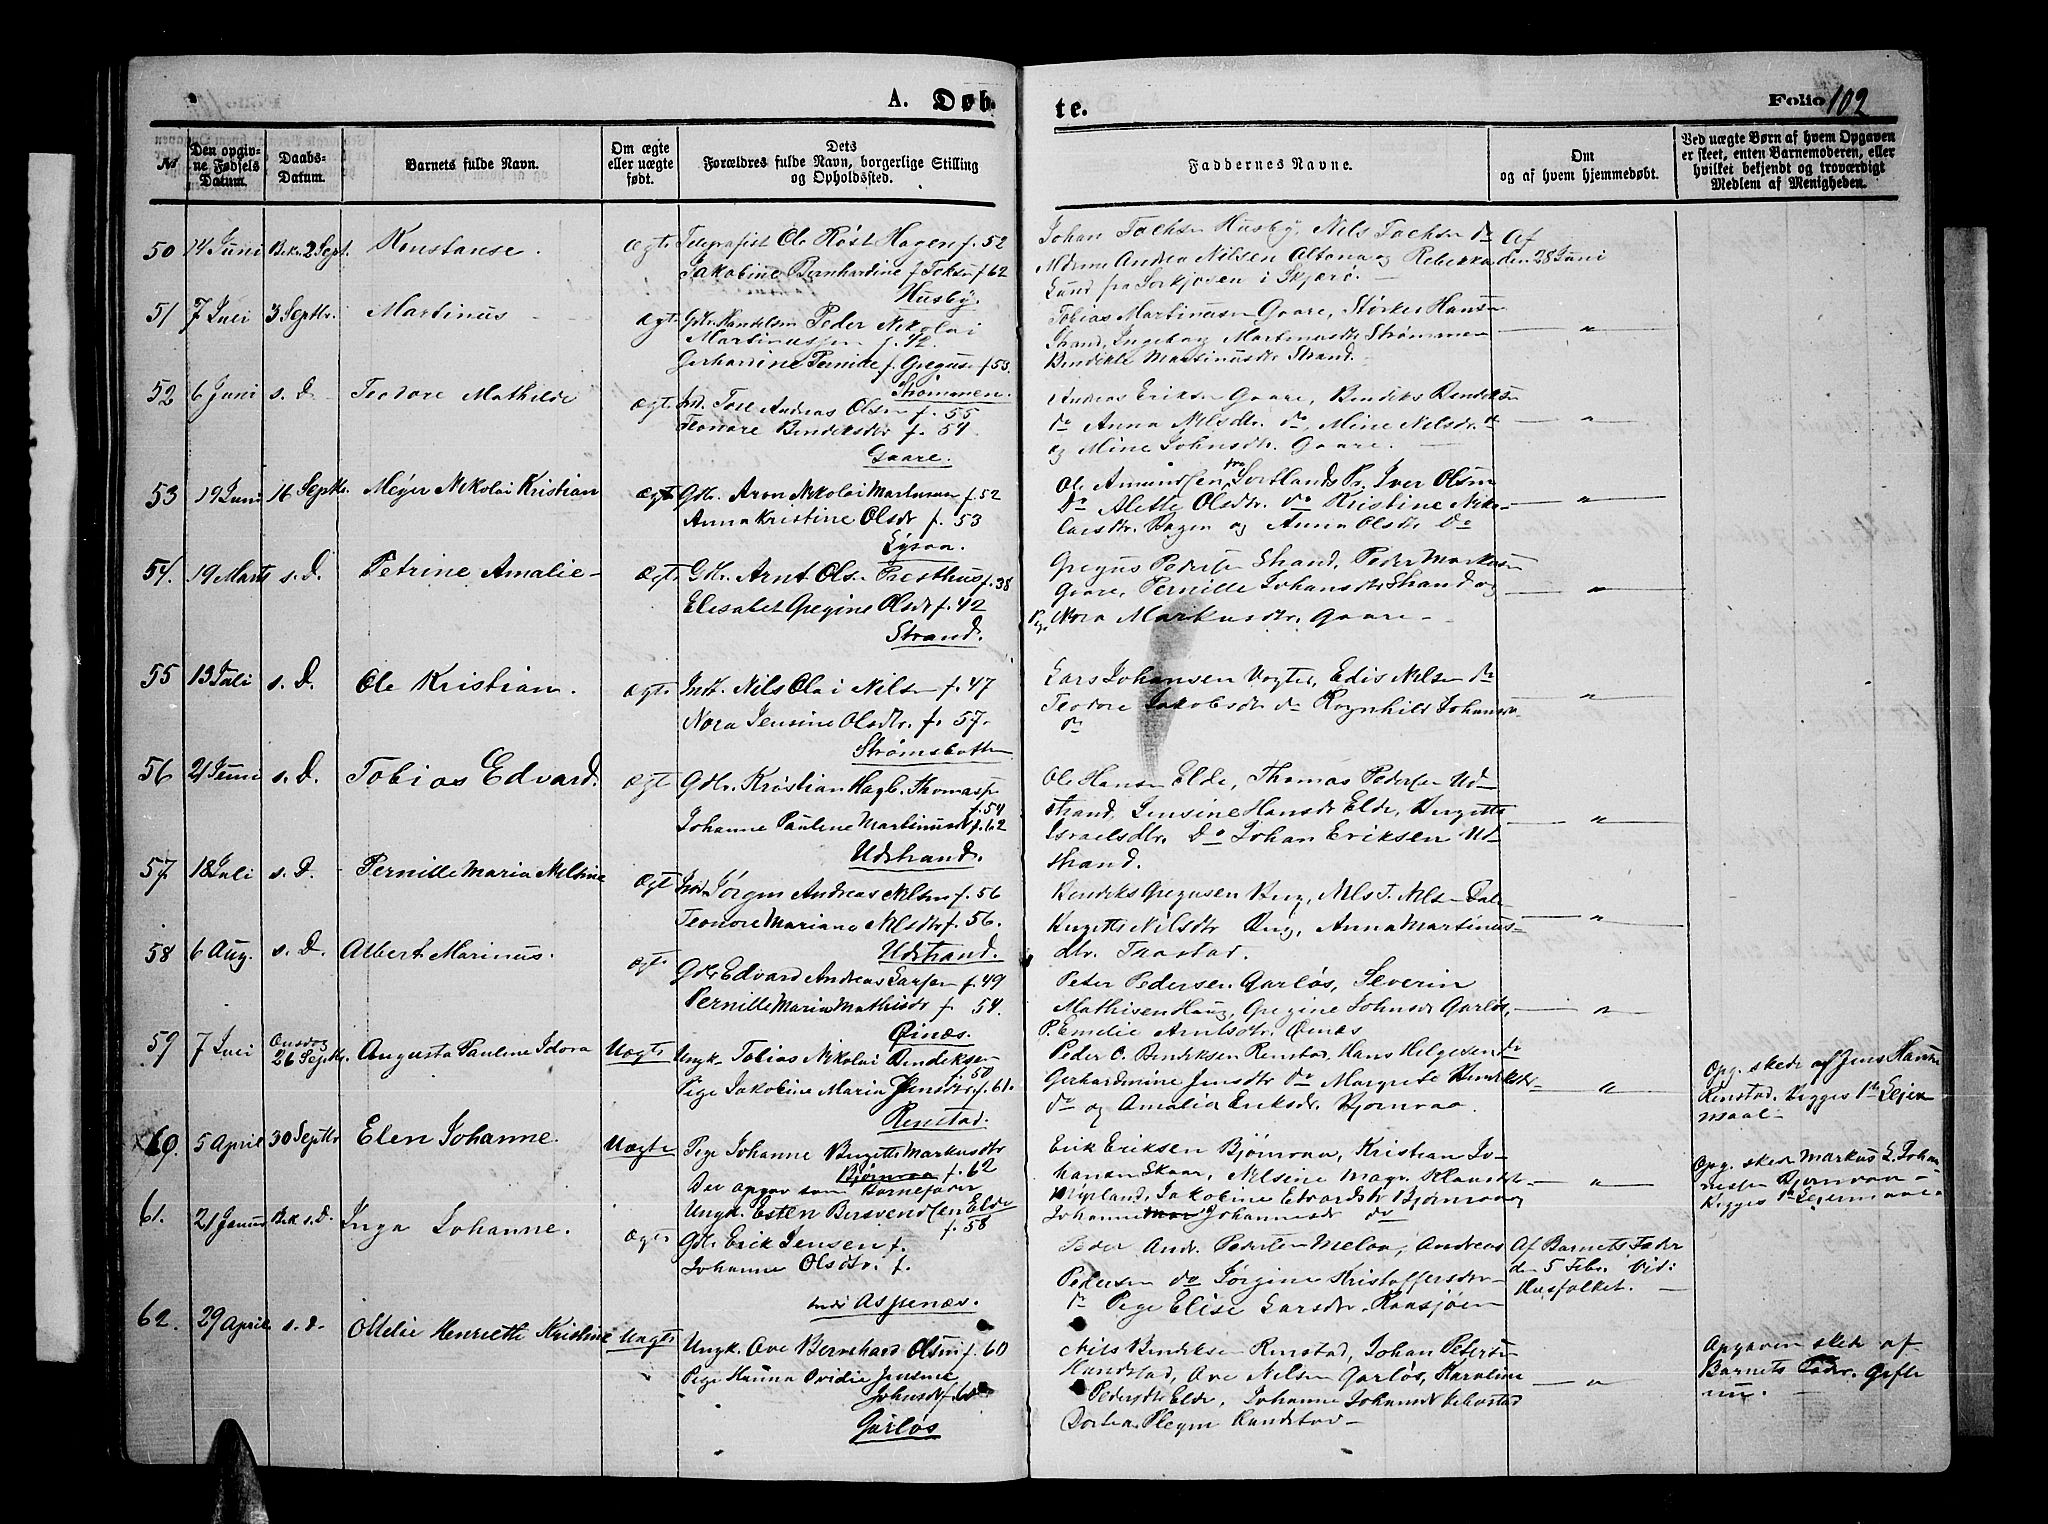 A. Døb-
te.
Folio 102
№
Den opgiv-
ne Fødsels
Datum.
Daabs-
Datum.
Barnets fulde Navn.
Om ægte
eller uægte
født.
Dets
Forældres fulde Navn, borgerlige Stilling
og Opholdssted.
Faddernes Navne.
Om
og af hvem hjemmedøbt.
Ved uægte Børn af hvem Opgaven
er skeet, enten Barnemoderen, eller
hvilket bekjendt og troværdigt
Medlem af Menigheden.
50 14 Juni Bek. 2 Sept. Konstanse. Ægte Telegrafist Ole Røst Hagen f. 52
Jakobine Bernhardine f. 62
Husby.
Johan Husby, Nils do
Andrea Nilsen Altona og Rebekka
Lund fra i Skjærø.
Af
den 28 Juni
51 7 Juli 3 Septbr. Martinus Ægte Peder Nikolai
Martinussen f. 42.
Gerhardine f. Gregus f. 53.
Strømmen.
Tobias Martinusen Gaare, Størker Hansen
Strand, Ingeborg Martinusdtr Strømmen
Martinusdtr Strand.
"
52 6 Juni s. D. Teodore Mathilde Ægte Ind. Tore Andreas Olsen f. 55
Teonore Bendiksdtr f. 54.
Gaare.
Andreas Eriksen Gaare, Bendiks Bendiksen
do Anna Nilsdtr. do, Mine Nilsdtr. do
og Mine Johnsdtr. Gaare.
"
53 19 Juni 16 Septbr. Meyer Nikolai Kristian Ægte Gdbr. Aron Nikolai Martinusen f. 52
Anna Kristine Olsdtr f. 53
Ole Amundsen fra Sortlands Pr. Iver Olsen
do Alette Olsdtr. do Kristine Niko-
laisdtr. og Anna Olsdtr do
"
54. 19 Marts s. D. Petrine Amalie Ægte Gdbr. Arnt Olsen Presthus f. 38
Elisabet Gregine Olsdtr f. 42
Strand.
Gregus Pedersen Strand, Peder Markusen
Gaare, Pernille Johansdtr Strand og
Pige Nora Markusdtr. Gaare
"
55 13 Juli s. D. Ole Kristian. Ægte Nils Olai Nilsen f. 47
Nora Jensine Olsdtr. f. 57.
Strømsbotten
Lars Johansen Vogter, Edis Nilsen do
Teodore Jakobsdtr do Ragnhild Johansdtr
do
"
56 21 Juni s. D. Tobias Edvard. Ægte Gdbr. Kristian Hagb. Thomass.
f. 54
Johanne Pauline Martinusdtr f. 62
Udstrand.
Ole Hansen Elde, Thomas Pedersen Ud-
strand, Jensine Hansdtr Elde, Birgitte
Israelsdtr. Do Johan Eriksen Ud-
strand.
"
57. 18 Juli s. D. Pernille Maria Nilsine Ægte Jørgen Andreas Nilsen f. 56
Teonore Mariana Nilsdtr f. 56.
Udstrand.
Bendiks Gregusen Berg, Nils T. Nilsen Dale
Birgitte Nilsdtr Berg, Anna Martinus-
dtr. Trastad.
"
58 6 Aug. s. D. Albert Marinus. Ægte Gdbr Edvard Andreas Larsen f. 49
Pernille Maria Mathisdtr f. 54.
Øinæs.
Peter Pedersen Garløs, Severin
Mathisen Haug, Gregine Johnsdtr Garløs,
P. Emelie Arntsdtr. Øinæs
"
59 7 Juli Onsdag
26 Septbr. Augusta Pauline Idora Uægte Ungk. Tobias Nikolai Bendiksen
f. 50
Pige Jakobine Maria Jensdtr. f. 61.
Renstad.
Peder O. Bendiksen Renstad, Hans Helgesen do
Gerhardmine Jensdtr do Margrete Bendiksdtr
do og Amalia Eriksdtr. Bjørnraa.
"
Opg. skede af Jens Hansen
Renstad. Begges 1ste Leier
maal.
60. 5 April 30 Septbr Elen Johanne. Uægte Pige Johanne Birgitte Markusdtr
Bjørnraa f. 62
Der opgav som Barnefader
Ungk. Esten Bersvendsen Elde
f. 58
Erik Eriksen Bjørnraa, Kristian Jo-
hansen Skaar, Nilsine Magr.
Nipland, Jakobine Edvardsdtr Bjørnraa og
Johanne Johannesdtr do
"
Opg. skede Markus L. Johan-
nessen Bjørnraa
Begges 1ste Leiermaal
61. 21 Januar Bek s. D. Inga Johanne. Ægte Gdbr. Erik Jensen f.
Johanne Olsdtr. f.
Indr Aspenæs.
Peder Andr. Pedersen Meløa, Andreas
Pedersen do Jørgine Kristoffersdtr
do Pige Elise Larsdtr. Kaasjøen
Af Barnets Fader
den 5 Febr. Vid:
Husfolket.
62. 29 April s. d. Ottelie Henriette Kristine Uægte Ungk. Ove Bernhard Olsen f. 60
Pige Hanna Ovidie Jensine
Johnsdtr f. 60
Garløs
Nils Bendiksen Renstad, Johan Petersen
Handstad, Ove Nilsen Garløs, Karoline
Pedersdtr Elde, Johanne Johansdtr
Dortea Kandstad
"
Opgaven skede af
Barnets Fader. Gifte
nu.